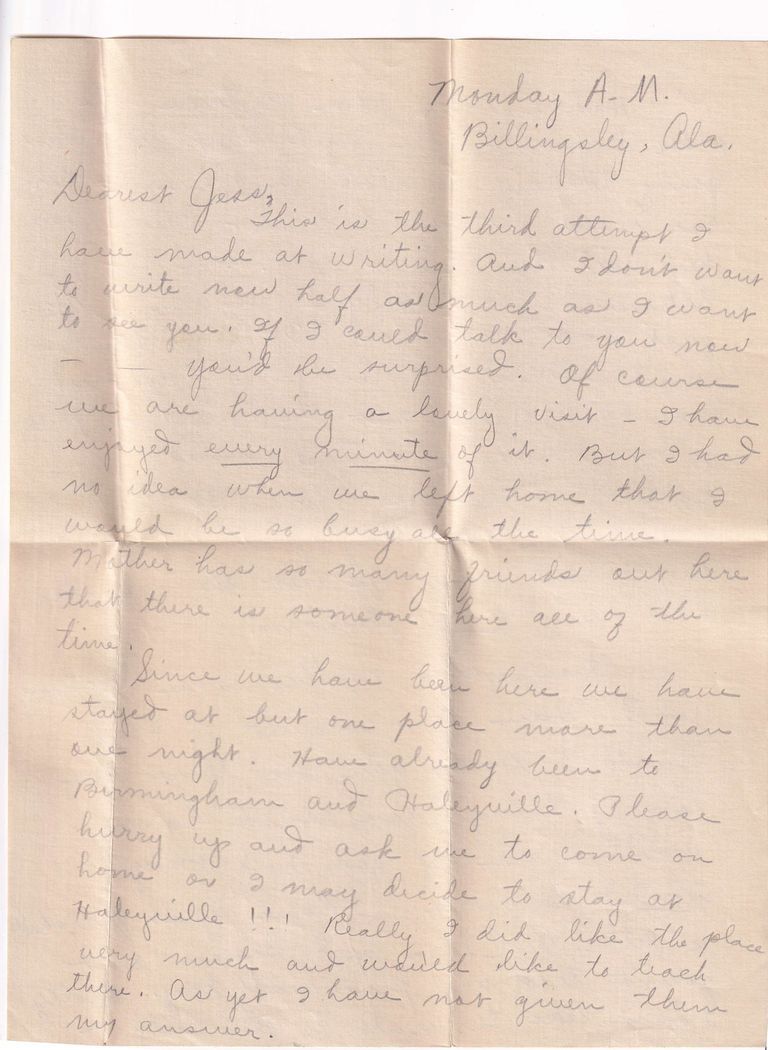 Monday A.M.
Billingsley, Ala.
Dearest Jess,
This is the third attempt I
have made at writing. And I don't want
to write now half as much as I want
to see you. If I could talk to you now
— — you'd be surprised. Of course
we are having a lovely visit - I have
enjoyed every minute of it. But I had
no idea when we left home that I
would be so busy all the time.
Mother has so many friends out here
that there is someone here all of the
time.
Since we have been here we have
stayed at but one place more than
one night. Have already been to
Birmingham and Haleyville. Please
hurry up and ask me to come on
home or I may decide to stay at
Haleyville !!! Really I did like the place
very much and would like to teach
there. As yet I have not given them
my answer.